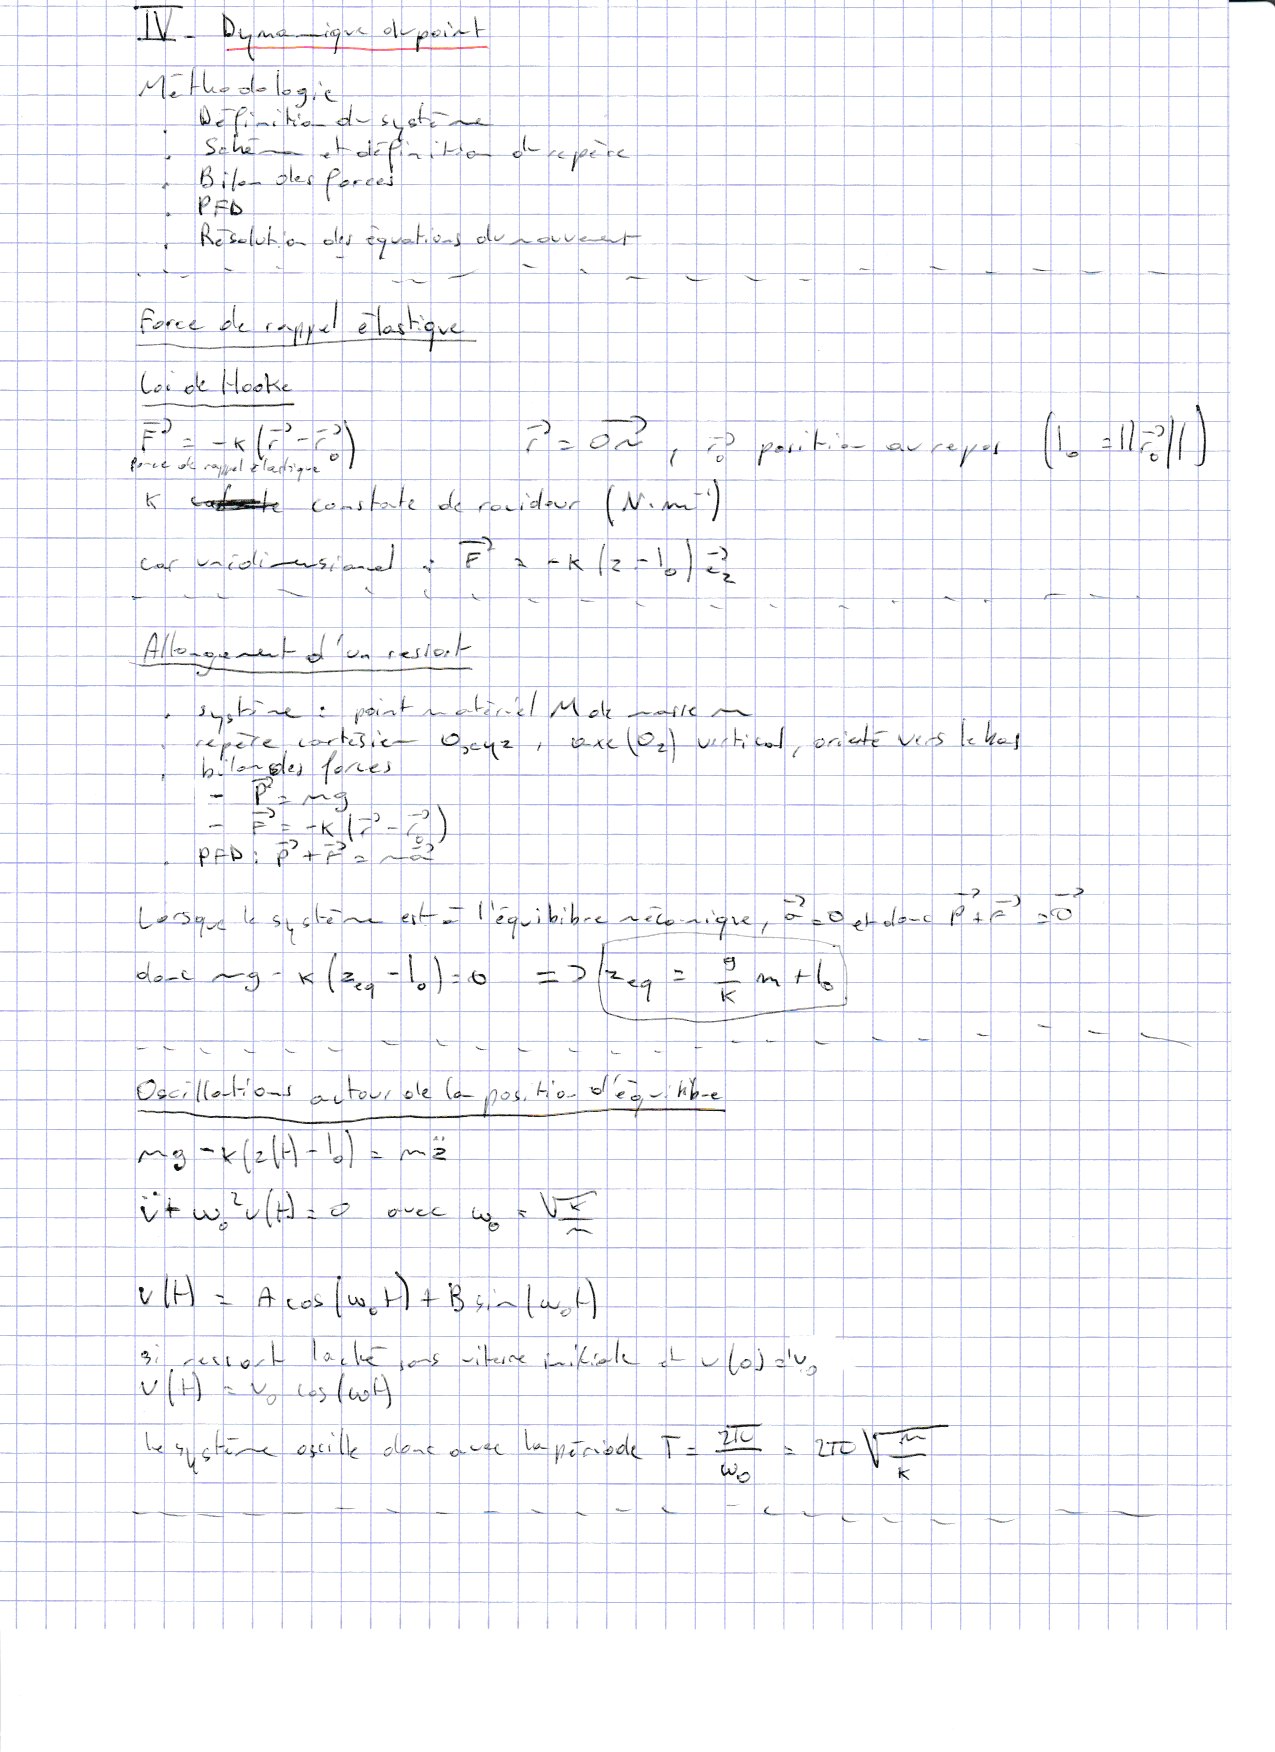 IV - Dynamique du point
Méthodologie
. Définition du système
. Schéma et définition du repère
. Bilan des forces
. PFD
. Résolution des équations du mouvement
Force de rappel élastique
Loi de Hooke
F⃗ = -k (r⃗ - r⃗₀)    r⃗ = OM⃗ , r⃗₀ position au repos (l₀ = ||r⃗₀||)
force de rappel élastique
k constante de raideur (N·m⁻¹)
cas unidimensionnel : F⃗ = -k (z - l₀) e⃗z
Allongement d'un ressort
. système : point matériel M de masse m
. repère cartésien Oxyz, axe (Oz) vertical, orienté vers le bas
. bilan des forces
- P⃗ = mg
- F⃗ = -k (r⃗ - r⃗₀)
. PFD : P⃗ + F⃗ = ma⃗
Lorsque le système est à l'équilibre mécanique, a⃗ = 0 et donc P⃗ + F⃗ = 0⃗
donc mg - k (z_eq - l₀) = 0 => z_eq = g/k m + l₀
Oscillations autour de la position d'équilibre
mg - k (z(t) - l₀) = m z̈
v̈ + ω₀² v(t) = 0 avec ω₀ = √(k/m)
v(t) = A cos(ω₀t) + B sin(ω₀t)
si ressort laché sans vitesse initiale et v(0) = v₀
v(t) = v₀ cos(ωt)
le système oscille donc avec la période T = 2π/ω₀ = 2π √(m/k)